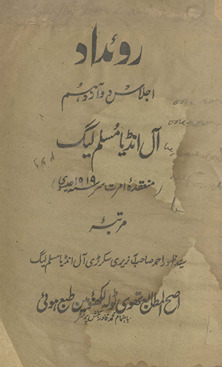 روئداد
اجلاس دوازدہم
آل انڈیا مسلم لیگ
(منعقدہ امرت سر ۱۹۱۹ عیسوی)
مرتبۂ
سید ظہور احمد صاحب آنریری سکرٹری آل انڈیا مسلم لیگ
اصح المطابع تھوی ٹولہ لکھنؤ مین طبع ہوئی